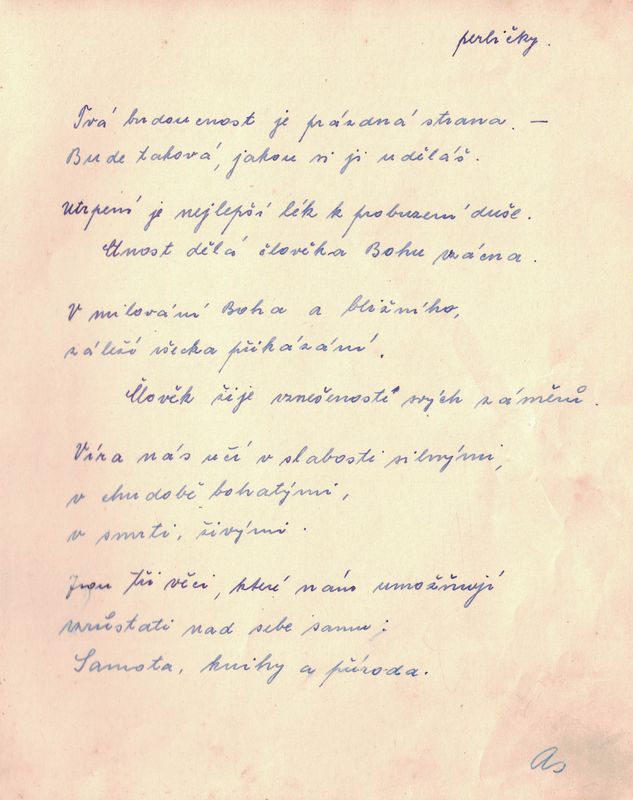 perličky.
Tvá budoucnost je prázdná strana. –
Bude taková, jakou si ji uděláš.
Utrpení je nejlepší lék k probuzení duše.
Ctnost dělá člověka Bohu vzácna.
V milování Boha a bližního,
záleží všecka přikázání.
Člověk žije vznešeností svých záměrů.
Víra nás učí v slabosti silnými,
v chudobě bohatými,
v smrti, živými.
Jsou tři věci, které nám umožňují
vzrůstati nad sebe samu:
Samota, knihy a příroda.
As